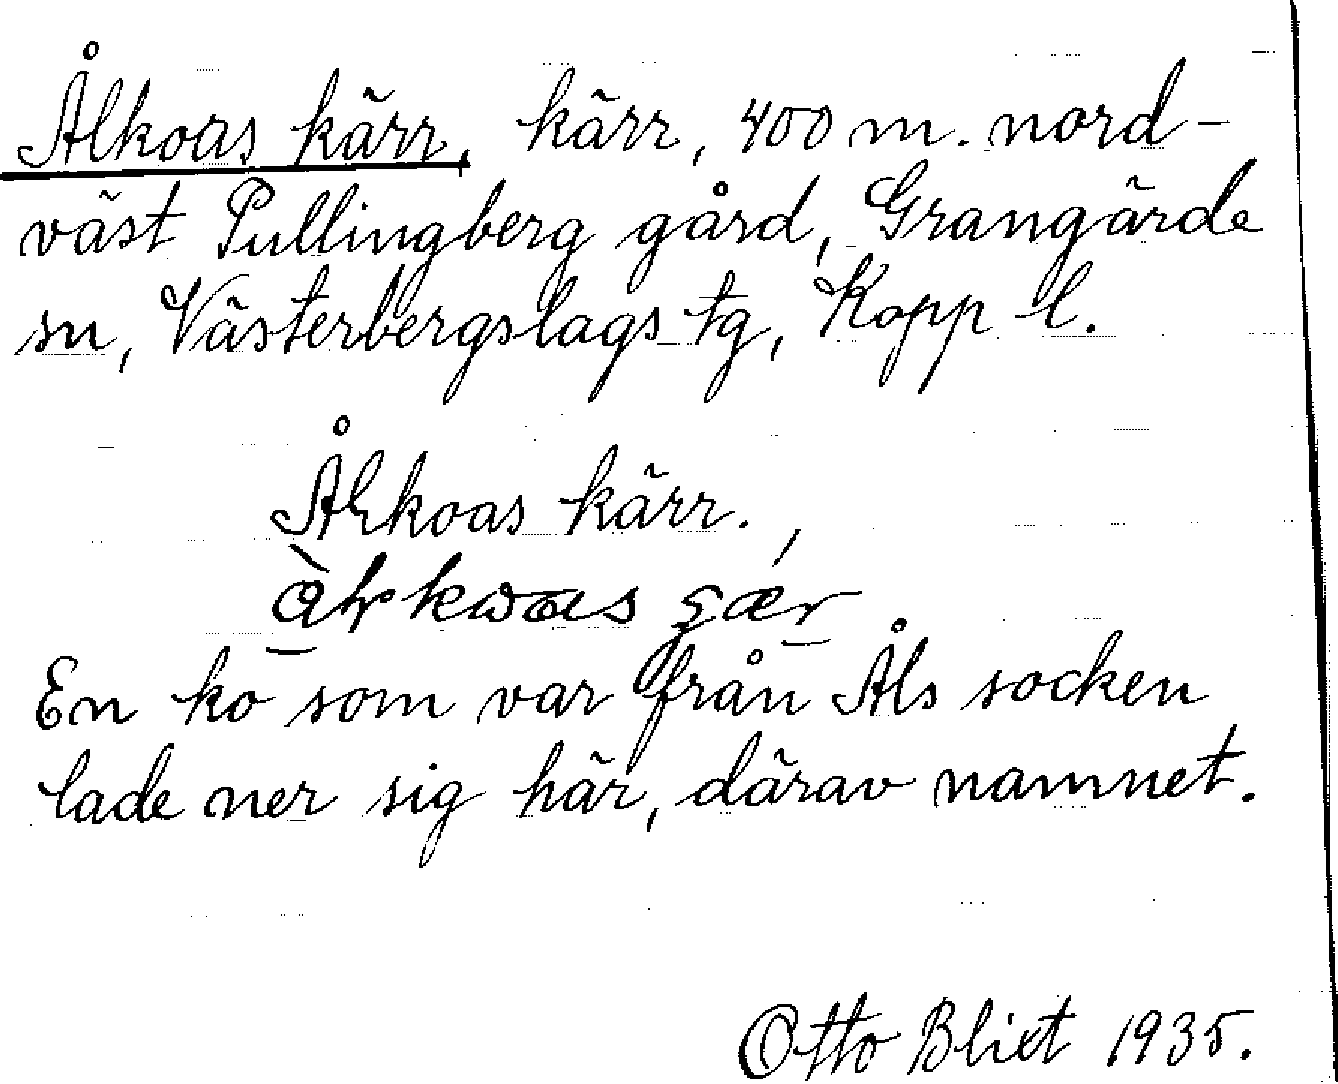 Ålkoas kärr, kärr, 400 m. nord-
väst Pullingberg gård, Grangärde
sn, Västerbergslags tg, Kopp l.
Åłkoas kärr.
En ko som var från Åls socken
lade ner sig här, därav namnet.
Otto Blixt 1935.